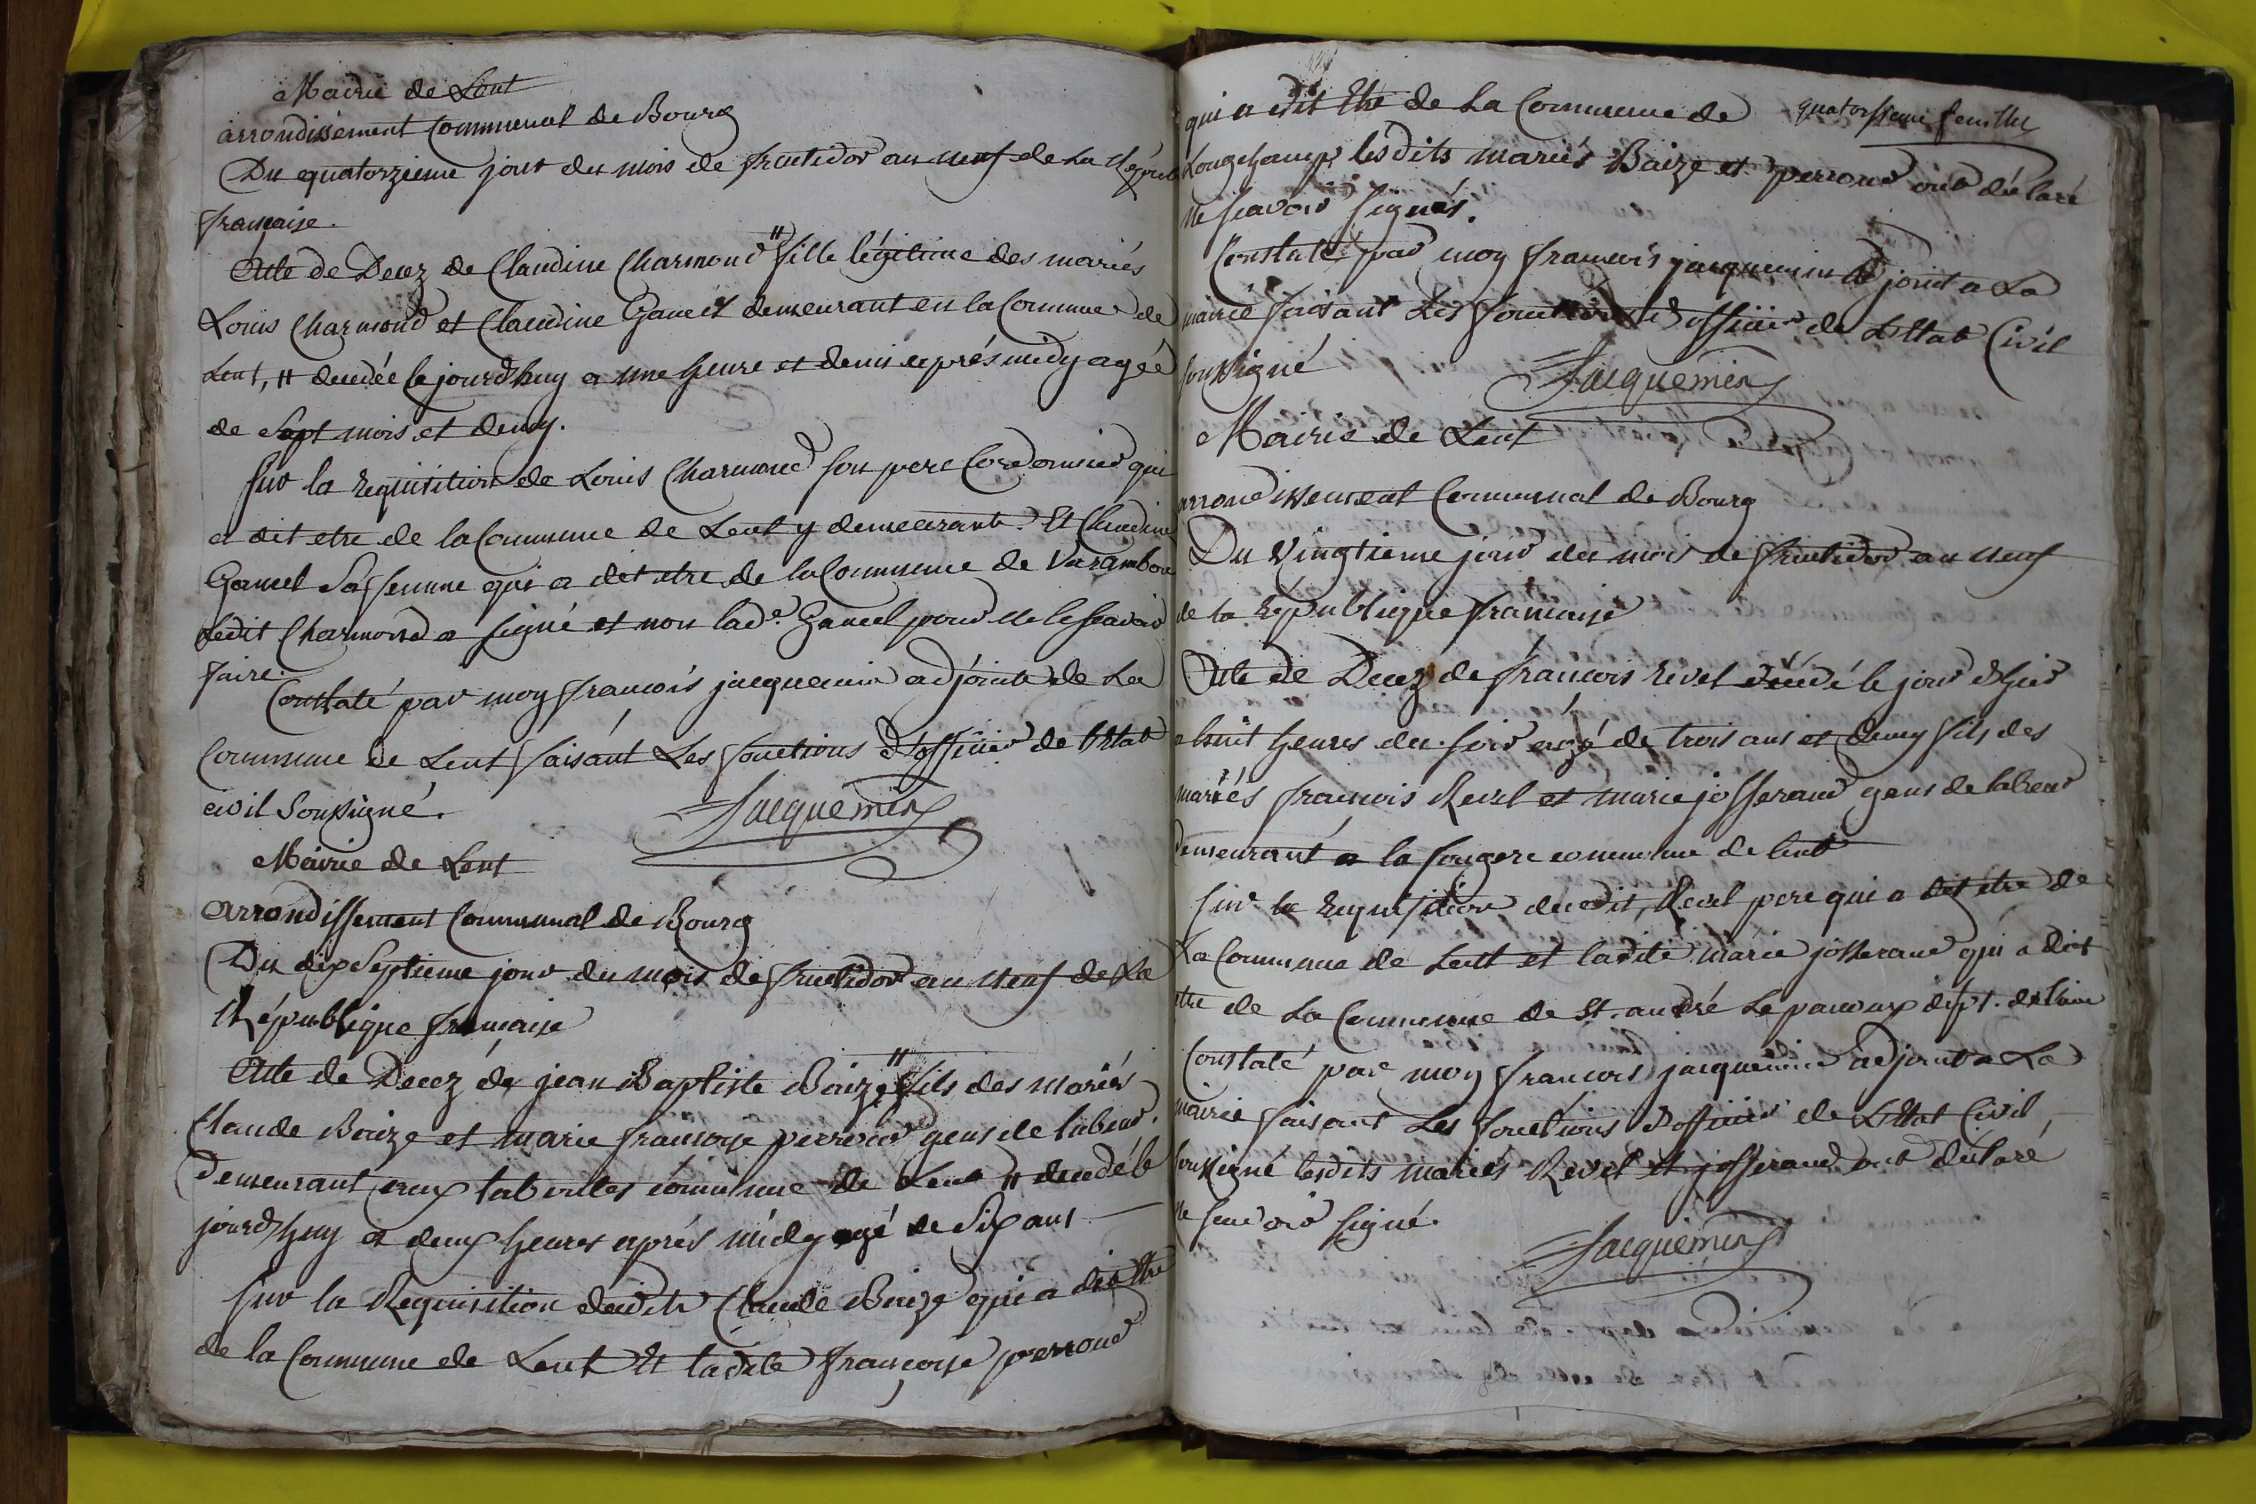 Mairie de Lent
arrondissement Communal de Bourg
Du quatorzieme jour du mois de fructidor an neuf de La Répub
francaise.
Acte de Decez de Claudine Charmond # fille légitime des mariés
Louis Charmond et Claudine Gancel demeurant en la Commune de
Lent, # decedée le jourdhuy a une heure et demi après midy agée
de Sept mois et demy.
Sur la requisition de Louis Charmond son pere Cordonnier qui
a dit etre de la Commune de Lent y demeurant. Et Claudine
Gancel Sa femme qui a dit etre de la Commune de Varambon
Ledit Charmond a signé et non lad.e Gancel pour ne le scavoir
faire.
Constaté par moy françois jacquemin adjoint de La
Commune de Lent faisant Les fonctions d'officier de l'Etat
civil Soussigné.
Jacquemin
Mairie de Lent
arrondissement Communal de Bourg
Du dix Septieme jour du mois de fructidor an neuf de La
République francaise
Acte de Decez de jean Baptiste Baize # fils des mariés
Claude Baize et marie françoise perroud gens de labeur.
Demeurant aux commune de Lent # decedé le
jourdhuy a deux heures après midy agé de Six ans
Sur la Requisition dudit Claude Baize qui a dit Etre
de la Commune de Lent Et ladite françoise perroud
quatorsieme feuillet
qui a dit Etre de La Commune de
Longchamp lesdits mariés Baize et perroud ont déclaré
ne scavoir signés.
Constaté par moy francois jacquemin adjoint a La
mairie faisant Les fonctions d'officier de L'Etat Civil
soussigné
Jacquemin
Mairie de Lent
arrondissement Communal de Bourg
Du Vingtieme jour du mois de fructidor an neuf
de la République francaise
Acte de Decez de françois revel décédé le jour d'hier
a huit heures du soir agé de trois ans et demy fils des
mariés francois Revel et marie josserand gens de labeur
demeurant a la fougere commune de lent
Sur la requisition dudit, Revel pere qui a dit etre de
La Commune de Lent et ladite marie josserand qui a dit
etre de La Commune de St. andré Le panoux dept. de l'ain
Constaté par moy francois jacquemin adjoint a La
mairie faisant Les fonctions d'officier de L'Etat Civil,
soussigné lesdits mariés Revel et josserand ont déclaré
ne scavoir signé.
Jacquemin